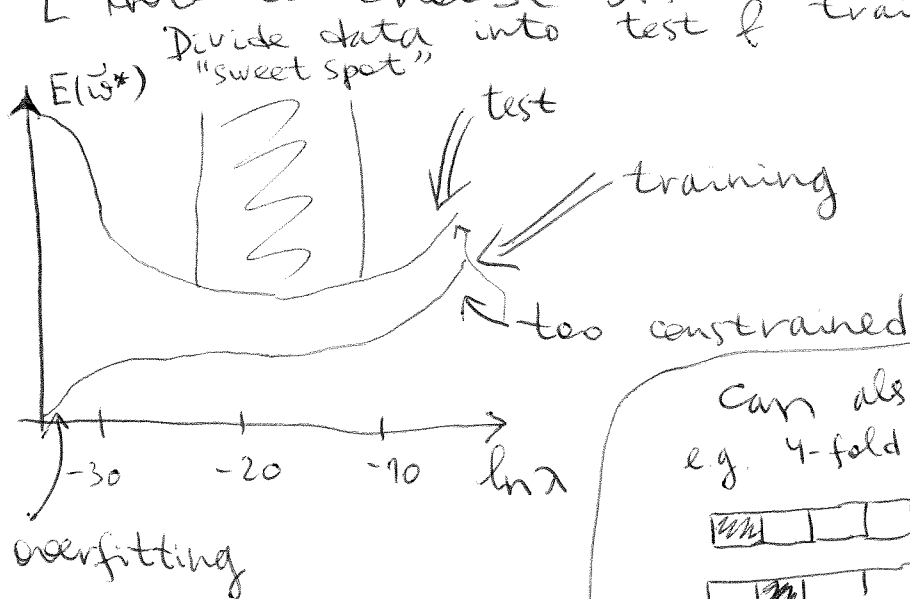 Divide data into test & trai
"sweet spot"
E(w̃*)
test
training
too constrained
-30
-20
-10
ln λ
overfitting
Can als
e.g. 4-fold